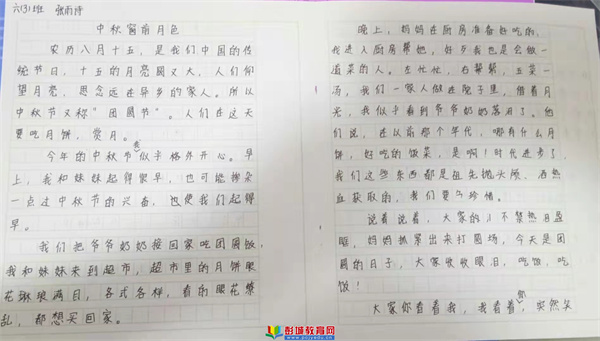 六(3)班 张雨诗
中秋窗前月色
农历八月十五，是我们中国的传
统节日，十五的月亮圆又大，人们仰
望月亮，思念远在异乡的家人。所以
中秋节又称“团圆节”。人们在这天
要吃月饼，赏月。
今年的中秋节我似乎格外开心。早
上，我和妹妹起得很早，也可能掺杂
一点过中秋节的兴奋，也使我们起得
早。
我们把爷爷奶奶接回家吃团圆饭
我和妹妹来到超市，超市里的月饼眼
花琳琅满目，各式各样，看的眼花缭
乱，都想买回家。
晚上，妈妈在厨房准备好吃的，
我进入厨房帮她，好歹我也是会做一
道菜的人。左忙忙，右帮帮，五菜一
汤，我们一家人做在院子里，借着月
光，我似乎看到爷爷奶奶落泪了。他
们说，在以前那个年代，哪有什么月
饼，好吃的饭菜，是啊！时代进步了
我们这些东西都是祖先抛头颅、洒热
血获取的，我们要多珍惜。
说着说着，大家的儿不禁热泪盈
眶，妈妈抓紧出来打圆场，今天是团
圆的日子，大家收收眼泪，吃饭，吃
饭！
大家你看看我，我看看你，突然笑
彭城教育网
www.pcjyedu.cn